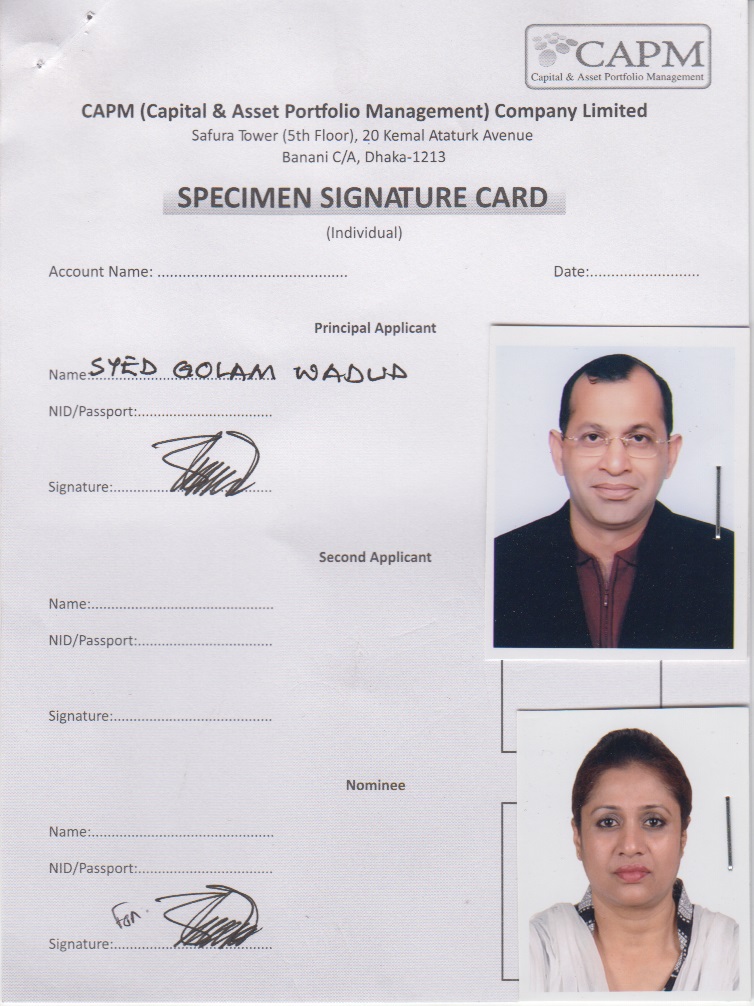 CAPM
Capital & Asset Portfolio Management
CAPM (Capital & Asset Portfolio Management) Company Limited
Safura Tower (5th Floor), 20 Kemal Ataturk Avenue
Banani C/A, Dhaka-1213
SPECIMEN SIGNATURE CARD
(Individual)
Account Name: ............................................ Date:.........................
Principal Applicant
Name:SYED GOLAM WADUD
NID/Passport:...............................
Signature:.....................................
Second Applicant
Name:..........................................
NID/Passport:...............................
Signature:.....................................
Nominee
Name:..........................................
NID/Passport:...............................
For.
Signature:.....................................